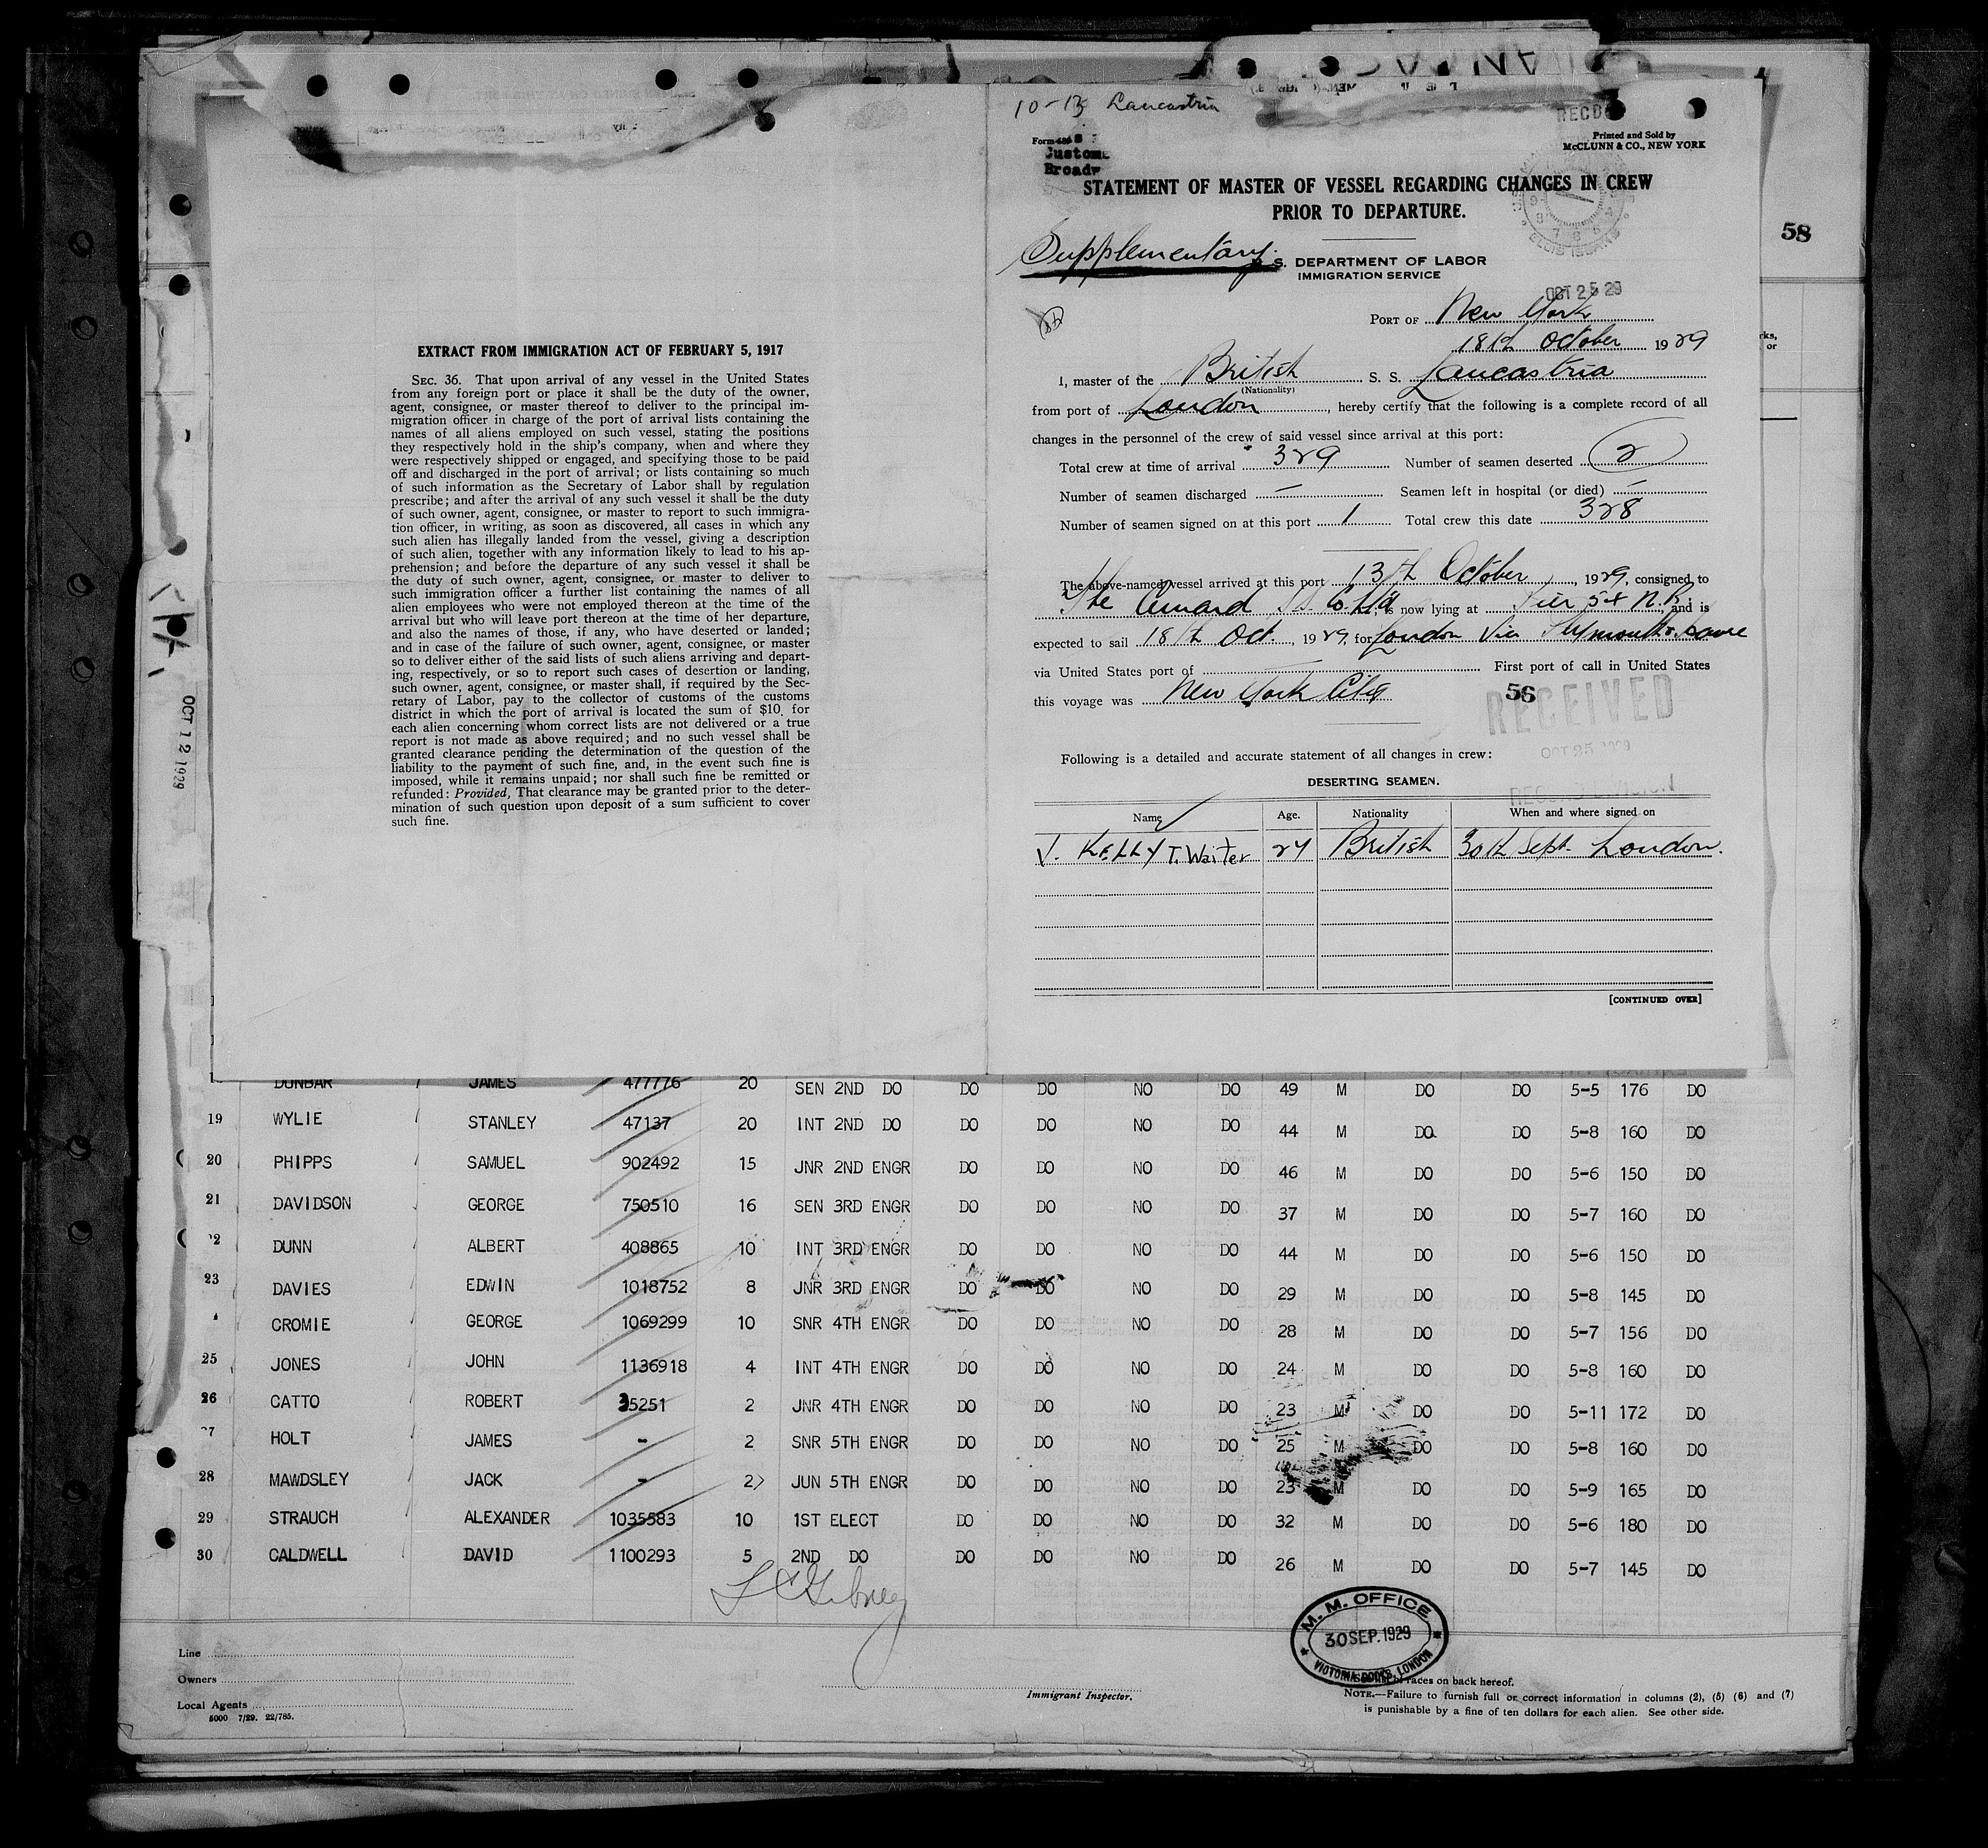 10-13 Lancastria
RECD
Printed and Sold by
McCLUNN & CO., NEW YORK
Form
Custom
Broadw
STATEMENT OF MASTER OF VESSEL REGARDING CHANGES IN CREW
PRIOR TO DEPARTURE.
Supplementary.
S. DEPARTMENT OF LABOR
IMMIGRATION SERVICE
OCT 25 29
PORT OF New York
18th October 1929
I, master of the British S. S. Lancastria
(Nationality)
from port of London, hereby certify that the following is a complete record of all
changes in the personnel of the crew of said vessel since arrival at this port:
Total crew at time of arrival 329 Number of seamen deserted 2
Number of seamen discharged — Seamen left in hospital (or died) —
Number of seamen signed on at this port 1 Total crew this date 328
The above-named vessel arrived at this port 13th October, 1929, consigned to
The Cunard S.S. Co. Ltd, is now lying at Pier 54 N.R. and is
expected to sail 18th Oct. 1929, for London Via Plymouth & Havre
via United States port of — First port of call in United States
this voyage was New York City
56
RECEIVED
OCT 25 1929
Following is a detailed and accurate statement of all changes in crew:
DESERTING SEAMEN.
Name Age. Nationality When and where signed on
J. KELLY T. Waiter 24 British 30th Sept. London.
[CONTINUED OVER]
58
EXTRACT FROM IMMIGRATION ACT OF FEBRUARY 5, 1917
SEC. 36. That upon arrival of any vessel in the United States
from any foreign port or place it shall be the duty of the owner,
agent, consignee, or master thereof to deliver to the principal im-
migration officer in charge of the port of arrival lists containing the
names of all aliens employed on such vessel, stating the positions
they respectively hold in the ship's company, when and where they
were respectively shipped or engaged, and specifying those to be paid
off and discharged in the port of arrival; or lists containing so much
of such information as the Secretary of Labor shall by regulation
prescribe; and after the arrival of any such vessel it shall be the duty
of such owner, agent, consignee, or master to report to such immigra-
tion officer, in writing, as soon as discovered, all cases in which any
such alien has illegally landed from the vessel, giving a description
of such alien, together with any information likely to lead to his ap-
prehension; and before the departure of any such vessel it shall be
the duty of such owner, agent, consignee, or master to deliver to
such immigration officer a further list containing the names of all
alien employees who were not employed thereon at the time of the
arrival but who will leave port thereon at the time of her departure,
and also the names of those, if any, who have deserted or landed;
and in case of the failure of such owner, agent, consignee, or master
so to deliver either of the said lists of such aliens arriving and depart-
ing, respectively, or so to report such cases of desertion or landing,
such owner, agent, consignee, or master shall, if required by the Sec-
retary of Labor, pay to the collector of customs of the customs
district in which the port of arrival is located the sum of $10 for
each alien concerning whom correct lists are not delivered or a true
report is not made as above required; and no such vessel shall be
granted clearance pending the determination of the question of the
liability to the payment of such fine, and, in the event such fine is
imposed, while it remains unpaid; nor shall such fine be remitted or
refunded: Provided, That clearance may be granted prior to the deter-
mination of such question upon deposit of a sum sufficient to cover
such fine.
OCT 12 1929
DUNBAR JAMES 477776 20 SEN 2ND DO DO DO NO DO 49 M DO DO 5-5 176 DO
19 WYLIE STANLEY 47137 20 INT 2ND DO DO DO NO DO 44 M DO DO 5-8 160 DO
20 PHIPPS SAMUEL 902492 15 JNR 2ND ENGR DO DO NO DO 46 M DO DO 5-6 150 DO
21 DAVIDSON GEORGE 750510 16 SEN 3RD ENGR DO DO NO DO 37 M DO DO 5-7 160 DO
2 DUNN ALBERT 408865 10 INT 3RD ENGR DO DO NO DO 44 M DO DO 5-6 150 DO
23 DAVIES EDWIN 1018752 8 JNR 3RD ENGR DO DO NO DO 29 M DO DO 5-8 145 DO
CROMIE GEORGE 1069299 10 SNR 4TH ENGR DO DO NO DO 28 M DO DO 5-7 156 DO
25 JONES JOHN 1136918 4 INT 4TH ENGR DO DO NO DO 24 M DO DO 5-8 160 DO
26 CATTO ROBERT 35251 2 JNR 4TH ENGR DO DO NO DO 23 M DO DO 5-11 172 DO
7 HOLT JAMES - 2 SNR 5TH ENGR DO DO NO DO 25 M DO DO 5-8 160 DO
28 MAWDSLEY JACK - 2 JUN 5TH ENGR DO DO NO DO 23 M DO DO 5-9 165 DO
29 STRAUCH ALEXANDER 1035583 10 1ST ELECT DO DO NO DO 32 M DO DO 5-6 180 DO
30 CALDWELL DAVID 1100293 5 2ND DO DO DO NO DO 26 M DO DO 5-7 145 DO
M. M. OFFICE
30 SEP. 1929
VICTORIA DOCKS, LONDON
Line
Owners
Local Agents
5000 7/29. 22/785.
Immigrant Inspector.
races on back hereof.
NOTE.—Failure to furnish full or correct information in columns (2), (5) (6) and (7)
is punishable by a fine of ten dollars for each alien. See other side.